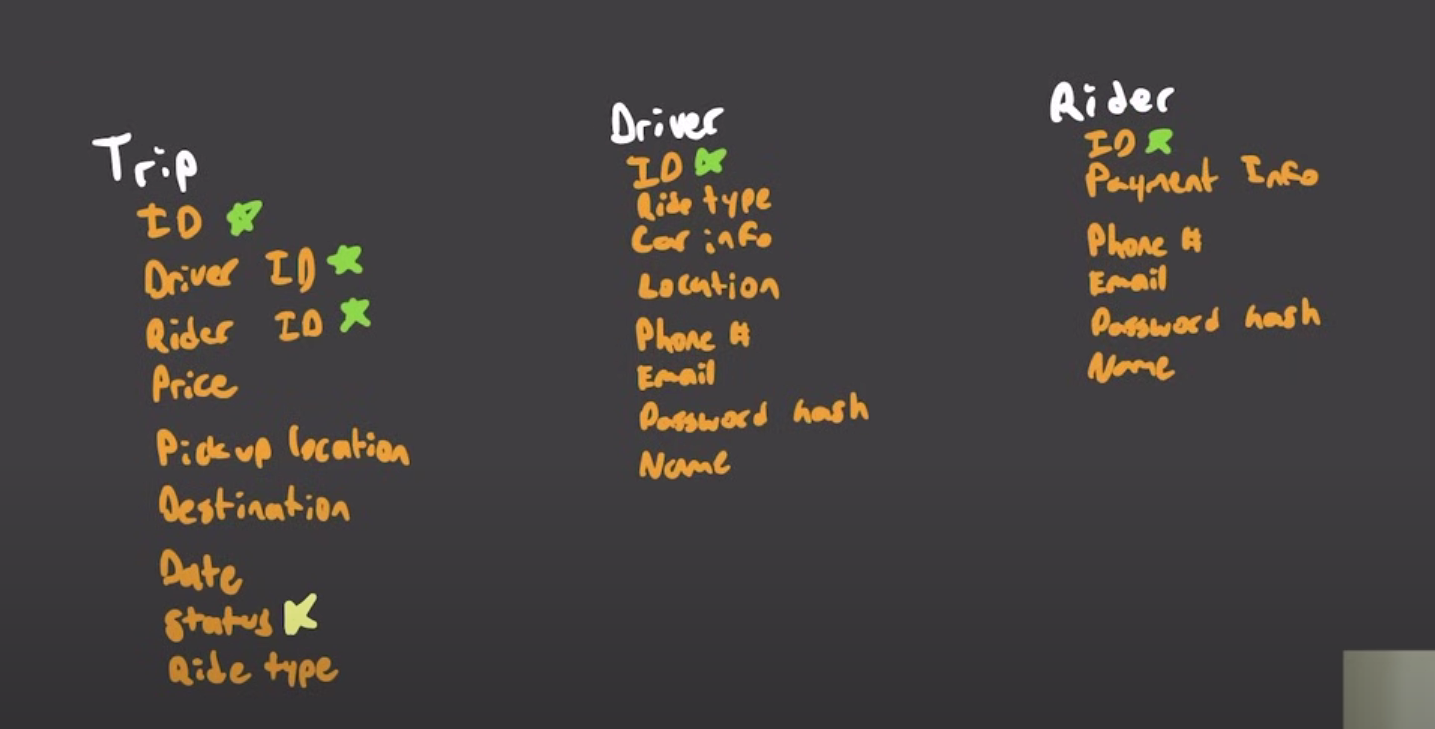 Trip
ID
Driver ID
Rider ID
Price
Pickup location
Destination
Date
Status
Ride type
Driver
ID
Ride type
Car info
Location
Phone #
Email
Password hash
Name
Rider
ID
Payment Info
Phone #
Email
Password hash
Name